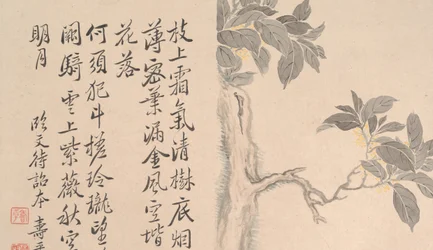 枝上霜氣清樹底烟
薄密葉漏金風空堦
花落
何須犯斗槎玲瓏望
闕騎雲上紫薇秋空
明月
臨文待詔本 壽平